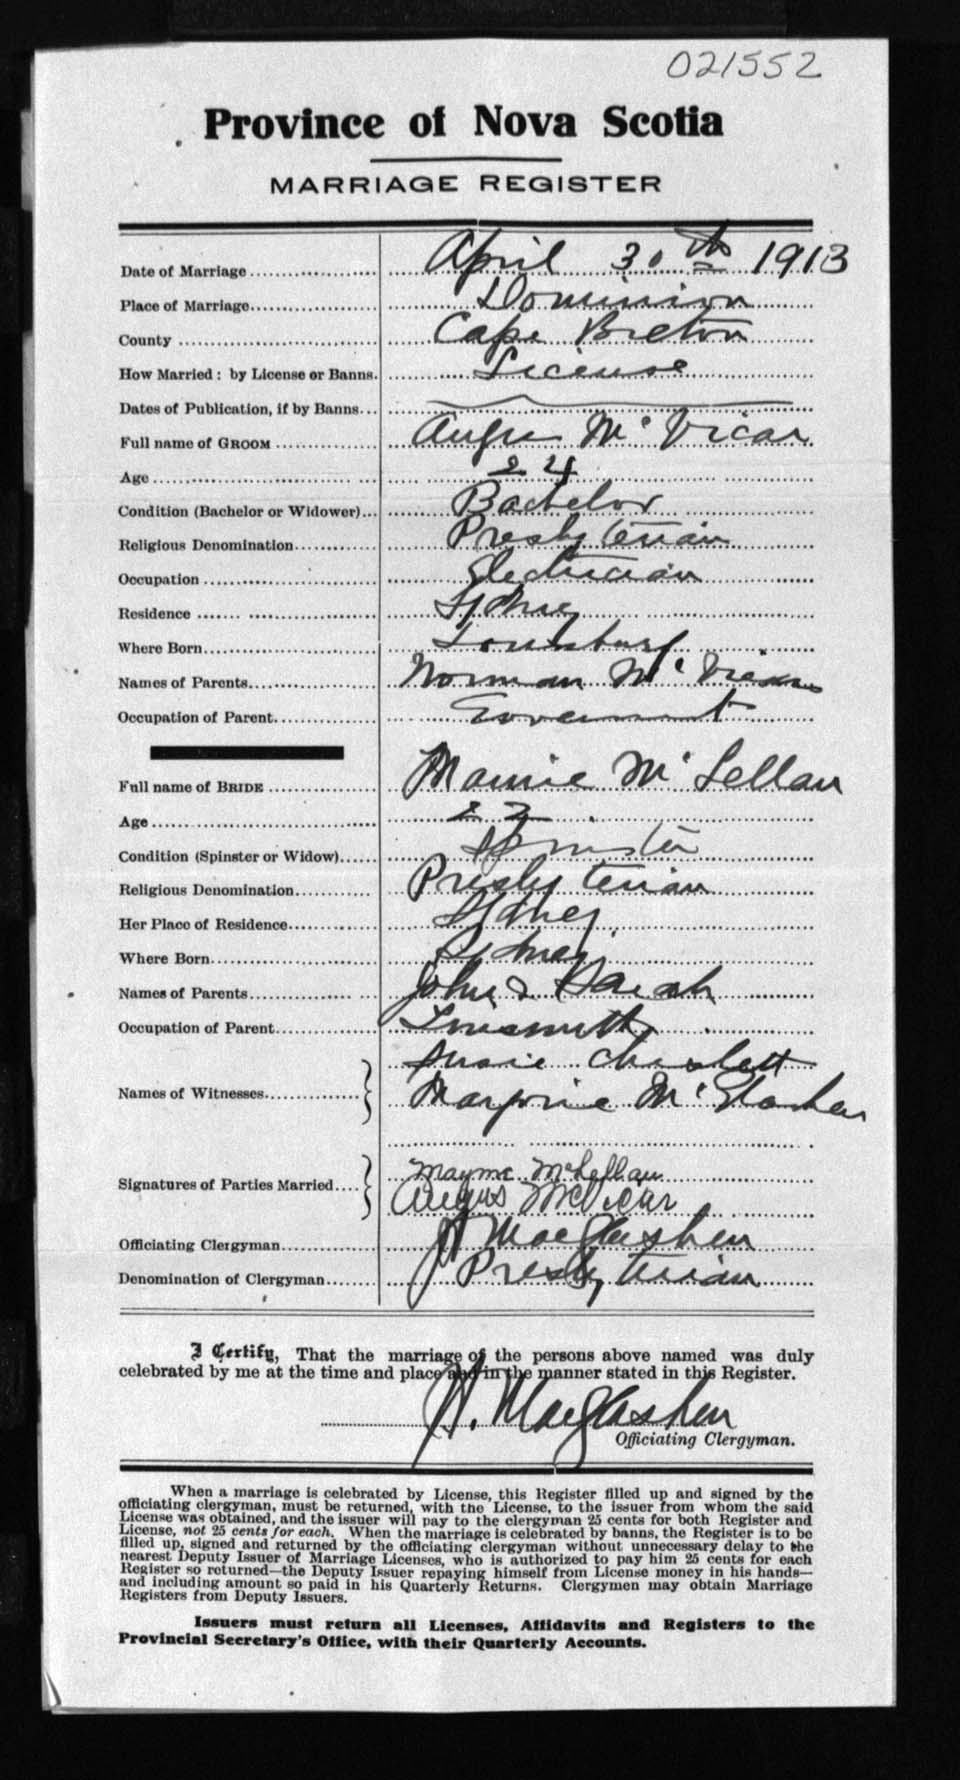 021552
Province of Nova Scotia
MARRIAGE REGISTER
Date of Marriage April 30th 1913
Place of Marriage Dominion
County Cape Breton
How Married: by License or Banns. License
Dates of Publication, if by Banns
Full name of GROOM Angus Mc Vicar
Age 24
Condition (Bachelor or Widower) Bachelor
Religious Denomination Presbyterian
Occupation Electrician
Residence Sydney
Where Born Louisburg
Names of Parents Norman Mc Vicar
Occupation of Parent Government
Full name of BRIDE Mamie Mc Lellan
Age 22
Condition (Spinster or Widow) Spinster
Religious Denomination Presbyterian
Her Place of Residence Sydney
Where Born Sydney
Names of Parents John & Sarah
Occupation of Parent Tinsmith
Susie
Names of Witnesses Marjorie Mc Glashen
Mayme McLellan
Signatures of Parties Married Angus McVicar
Officiating Clergyman MacGlashen
Denomination of Clergyman Presbyterian
I Certify, That the marriage of the persons above named was duly
celebrated by me at the time and place and in the manner stated in this Register.
MacGlashen
Officiating Clergyman.
When a marriage is celebrated by License, this Register filled up and signed by the
officiating clergyman, must be returned, with the License, to the issuer from whom the said
License was obtained, and the issuer will pay to the clergyman 25 cents for both Register and
License, not 25 cents for each. When the marriage is celebrated by banns, the Register is to be
filled up, signed and returned by the officiating clergyman without unnecessary delay to the
nearest Deputy Issuer of Marriage Licenses, who is authorized to pay him 25 cents for each
Register so returned—the Deputy Issuer repaying himself from License money in his hands—
and including amount so paid in his Quarterly Returns. Clergymen may obtain Marriage
Registers from Deputy Issuers.
Issuers must return all Licenses, Affidavits and Registers to the
Provincial Secretary's Office, with their Quarterly Accounts.